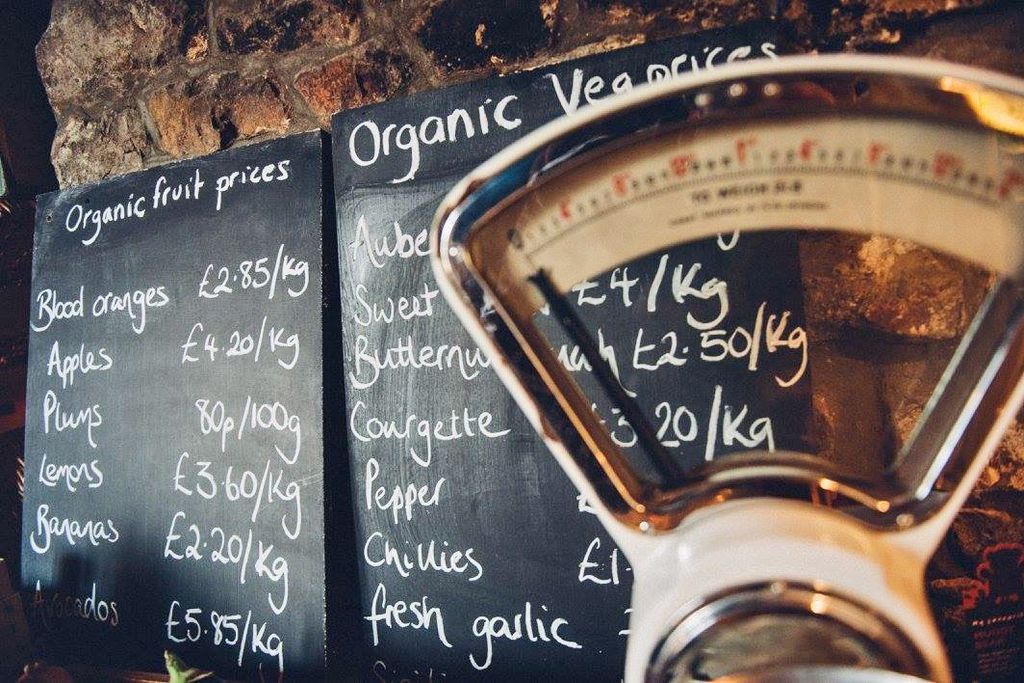 Organic fruit prices
Blood oranges £2.85/Kg
Apples £4.20/Kg
Plums 80p/100g
Lemons £3.60/Kg
Bananas £2.20/Kg
Avocados £5.85/Kg
Organic Veg prices
Aube
Sweet £4/Kg
Butternu £2.50/Kg
Courgette £3.20/Kg
Pepper £
Chillies £1
fresh garlic
TO WEIGH